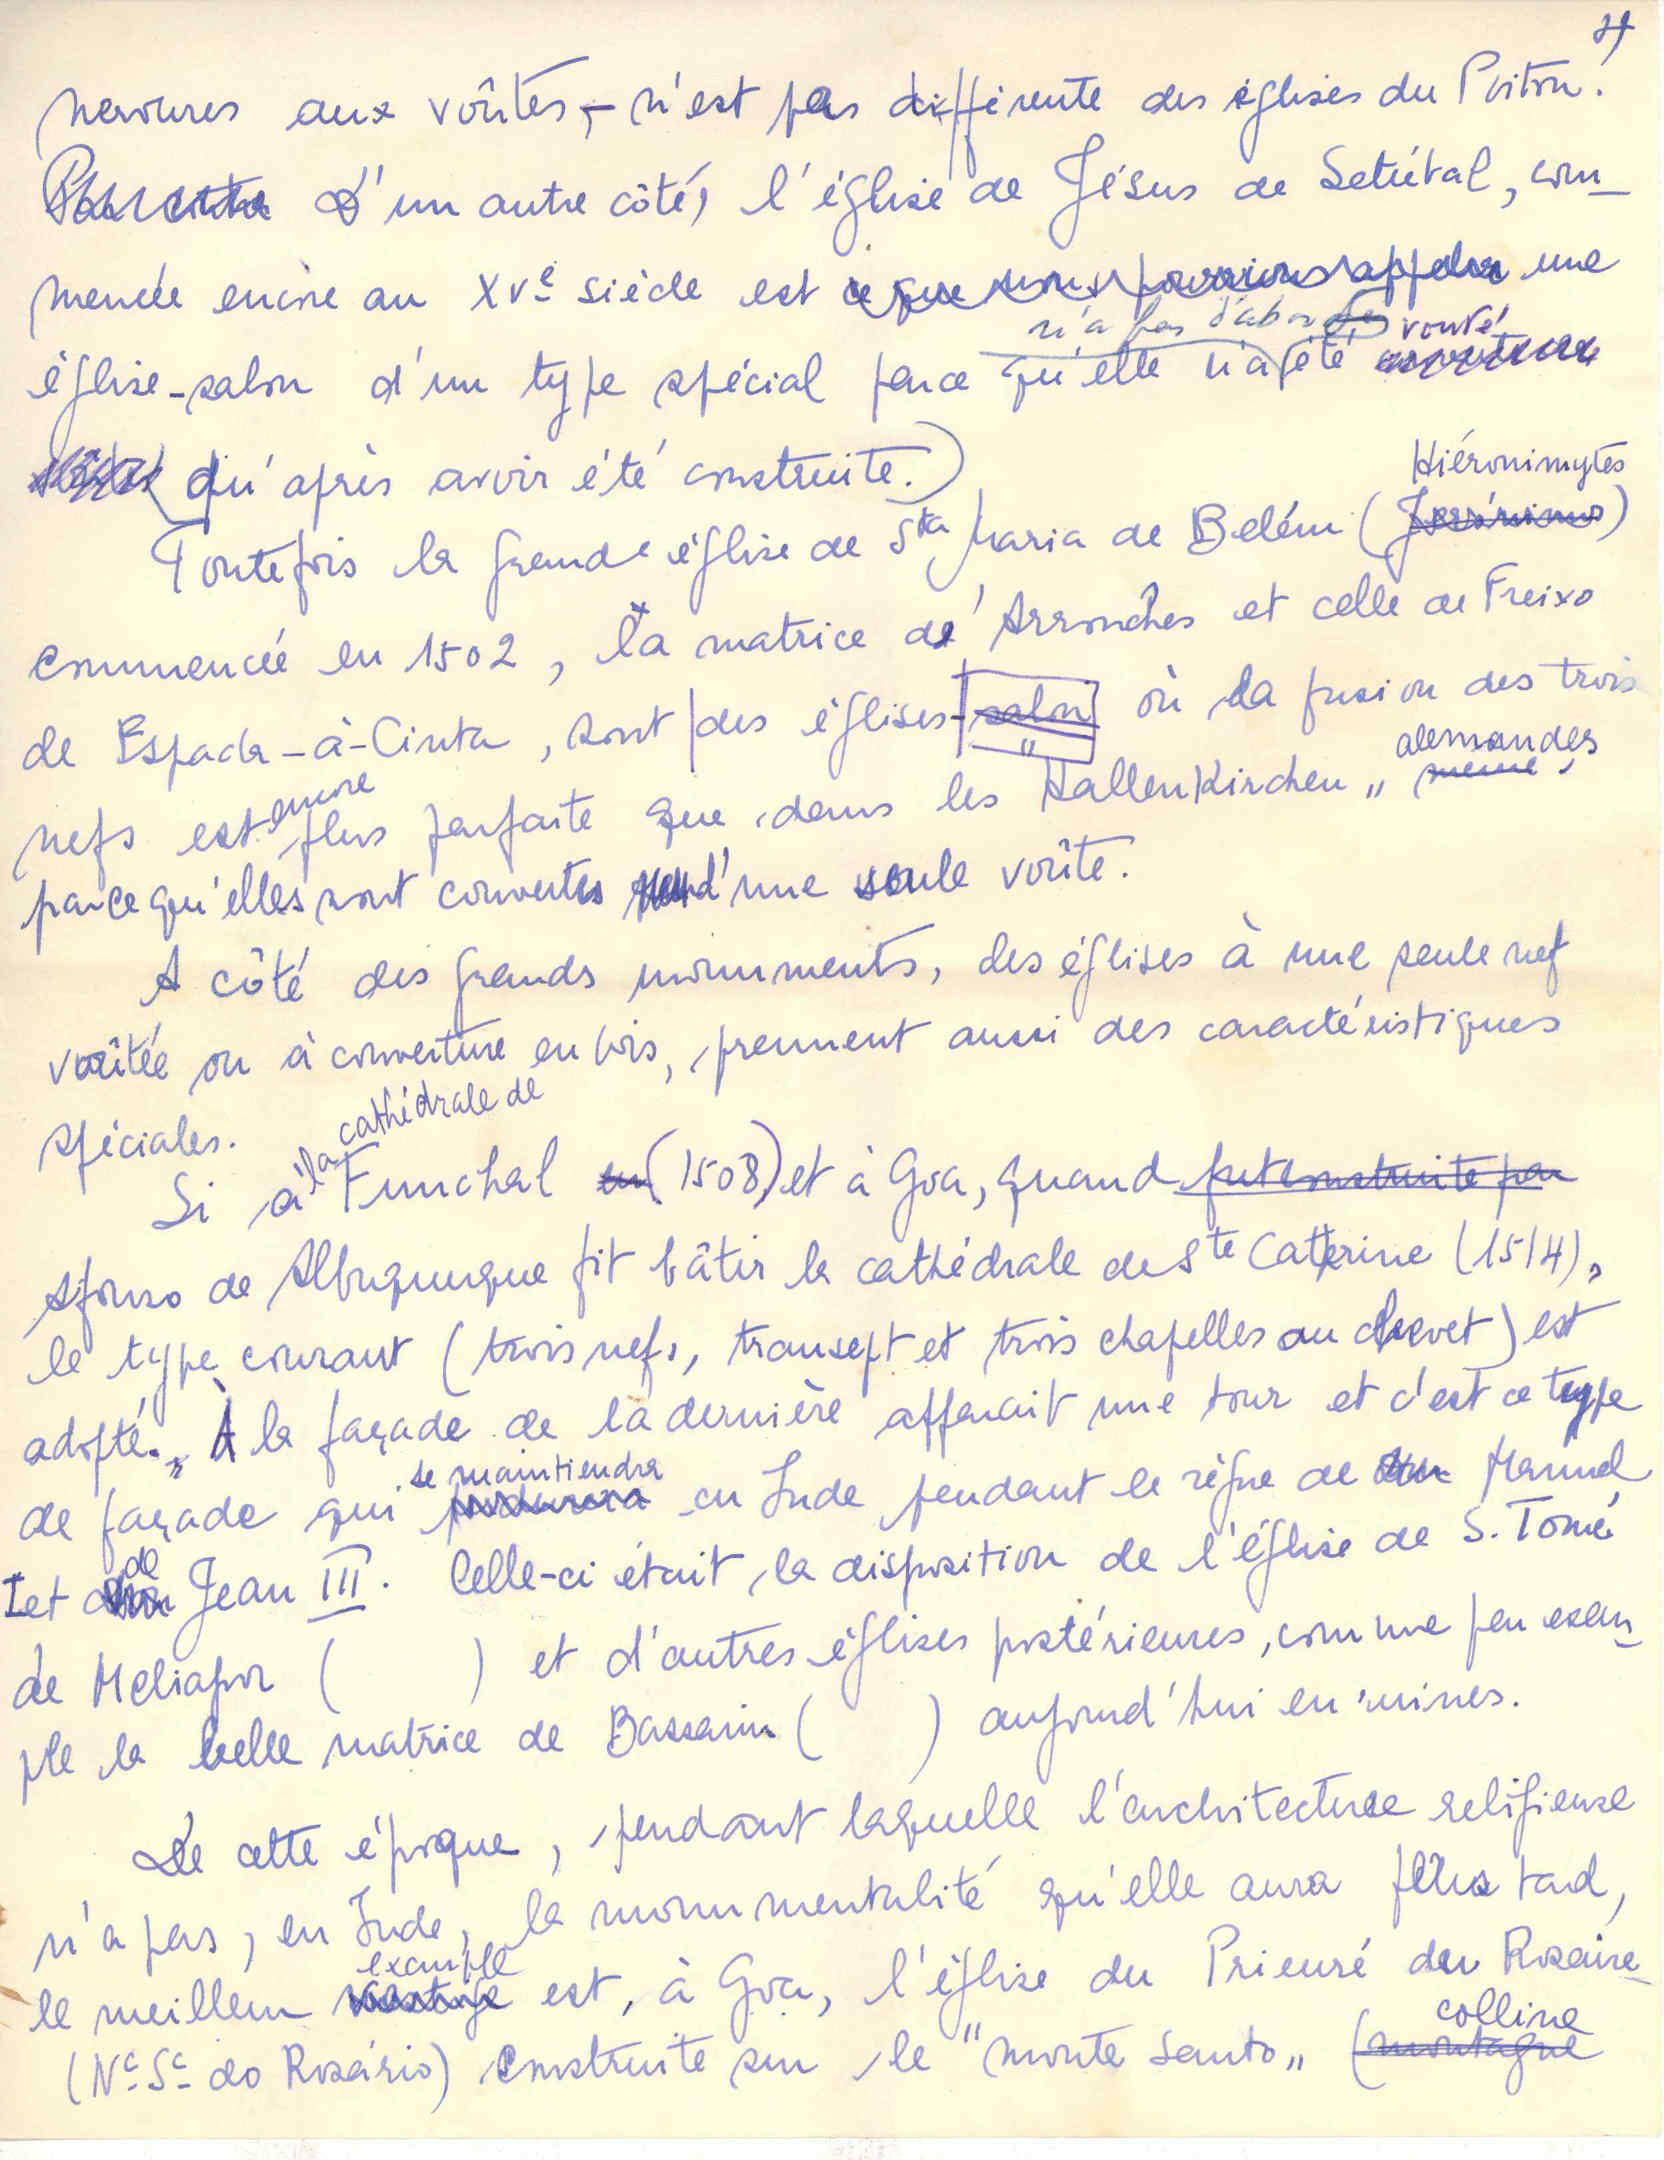 nervures aux voûtes, – n'est pas différente des églises du Poitou.
D'un autre côté, l'église de Jésus de Setúbal, com-
mencée encore au XVe siècle est ce que nous pourrions appeler une
n'a pas d'abord voûté
église-salon d'un type spécial parce qu'elle n'a été
qu'après avoir été construite.)
Hiéronimytes
Toutefois la grande église de Sta Maria de Belém (Jerónimos)
commencée en 1502, la matrice de Arronches et celle de Freixo
de Espada-à-Cinta, sont des églises-salon où la fusion des trois
encore alemandes
nefs est plus parfaite que dans les "Hallenkirchen" même,
parce qu'elles sont couvertes d'une seule voûte.
A côté des grands monuments, des églises à une seule nef
voûtée ou à couverture en bois, prennent aussi des caractéristiques
spéciales.
la cathédrale de
Si à Funchal en (1508) et à Goa, quand fut construite par
Afonso de Albuquerque fit bâtir la cathédrale de Ste Caterine (1514),
le type courant (trois nefs, transept et trois chapelles au chevet) est
adopté. À la façade de la dernière affarait une tour et c'est ce type
se maintiendra
de façade qui perdurera en Inde pendant le règne de Manuel
de
I et Jean III. Celle-ci était la disposition de l'église de S. Tomé
de Meliapor ( ) et d'autres églises postérieures, comme par exem-
ple la belle matrice de Bassaim ( ) aujourd'hui en ruines.
De cette époque, pendant laquelle l'architecture religieuse
n'a pas, en Inde, la monumentalité qu'elle aura plus tard,
exemple
le meilleur vestige est, à Goa, l'église du Prieuré du Rosaire
colline
(Na Sa do Rosário) construite sur le "monte santo" (montagne